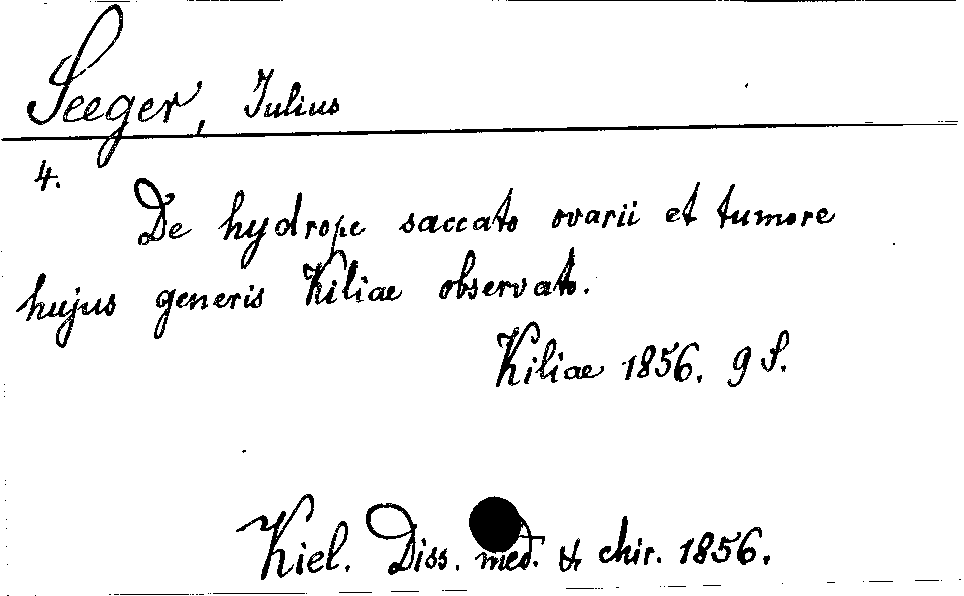 Seeger, Julius
4.
De hydrope saccato ovarii et tumore
hujus generis Kiliae observato.
Kiliae 1856. 9 S.
Kiel. Diss. med. & chir. 1856.